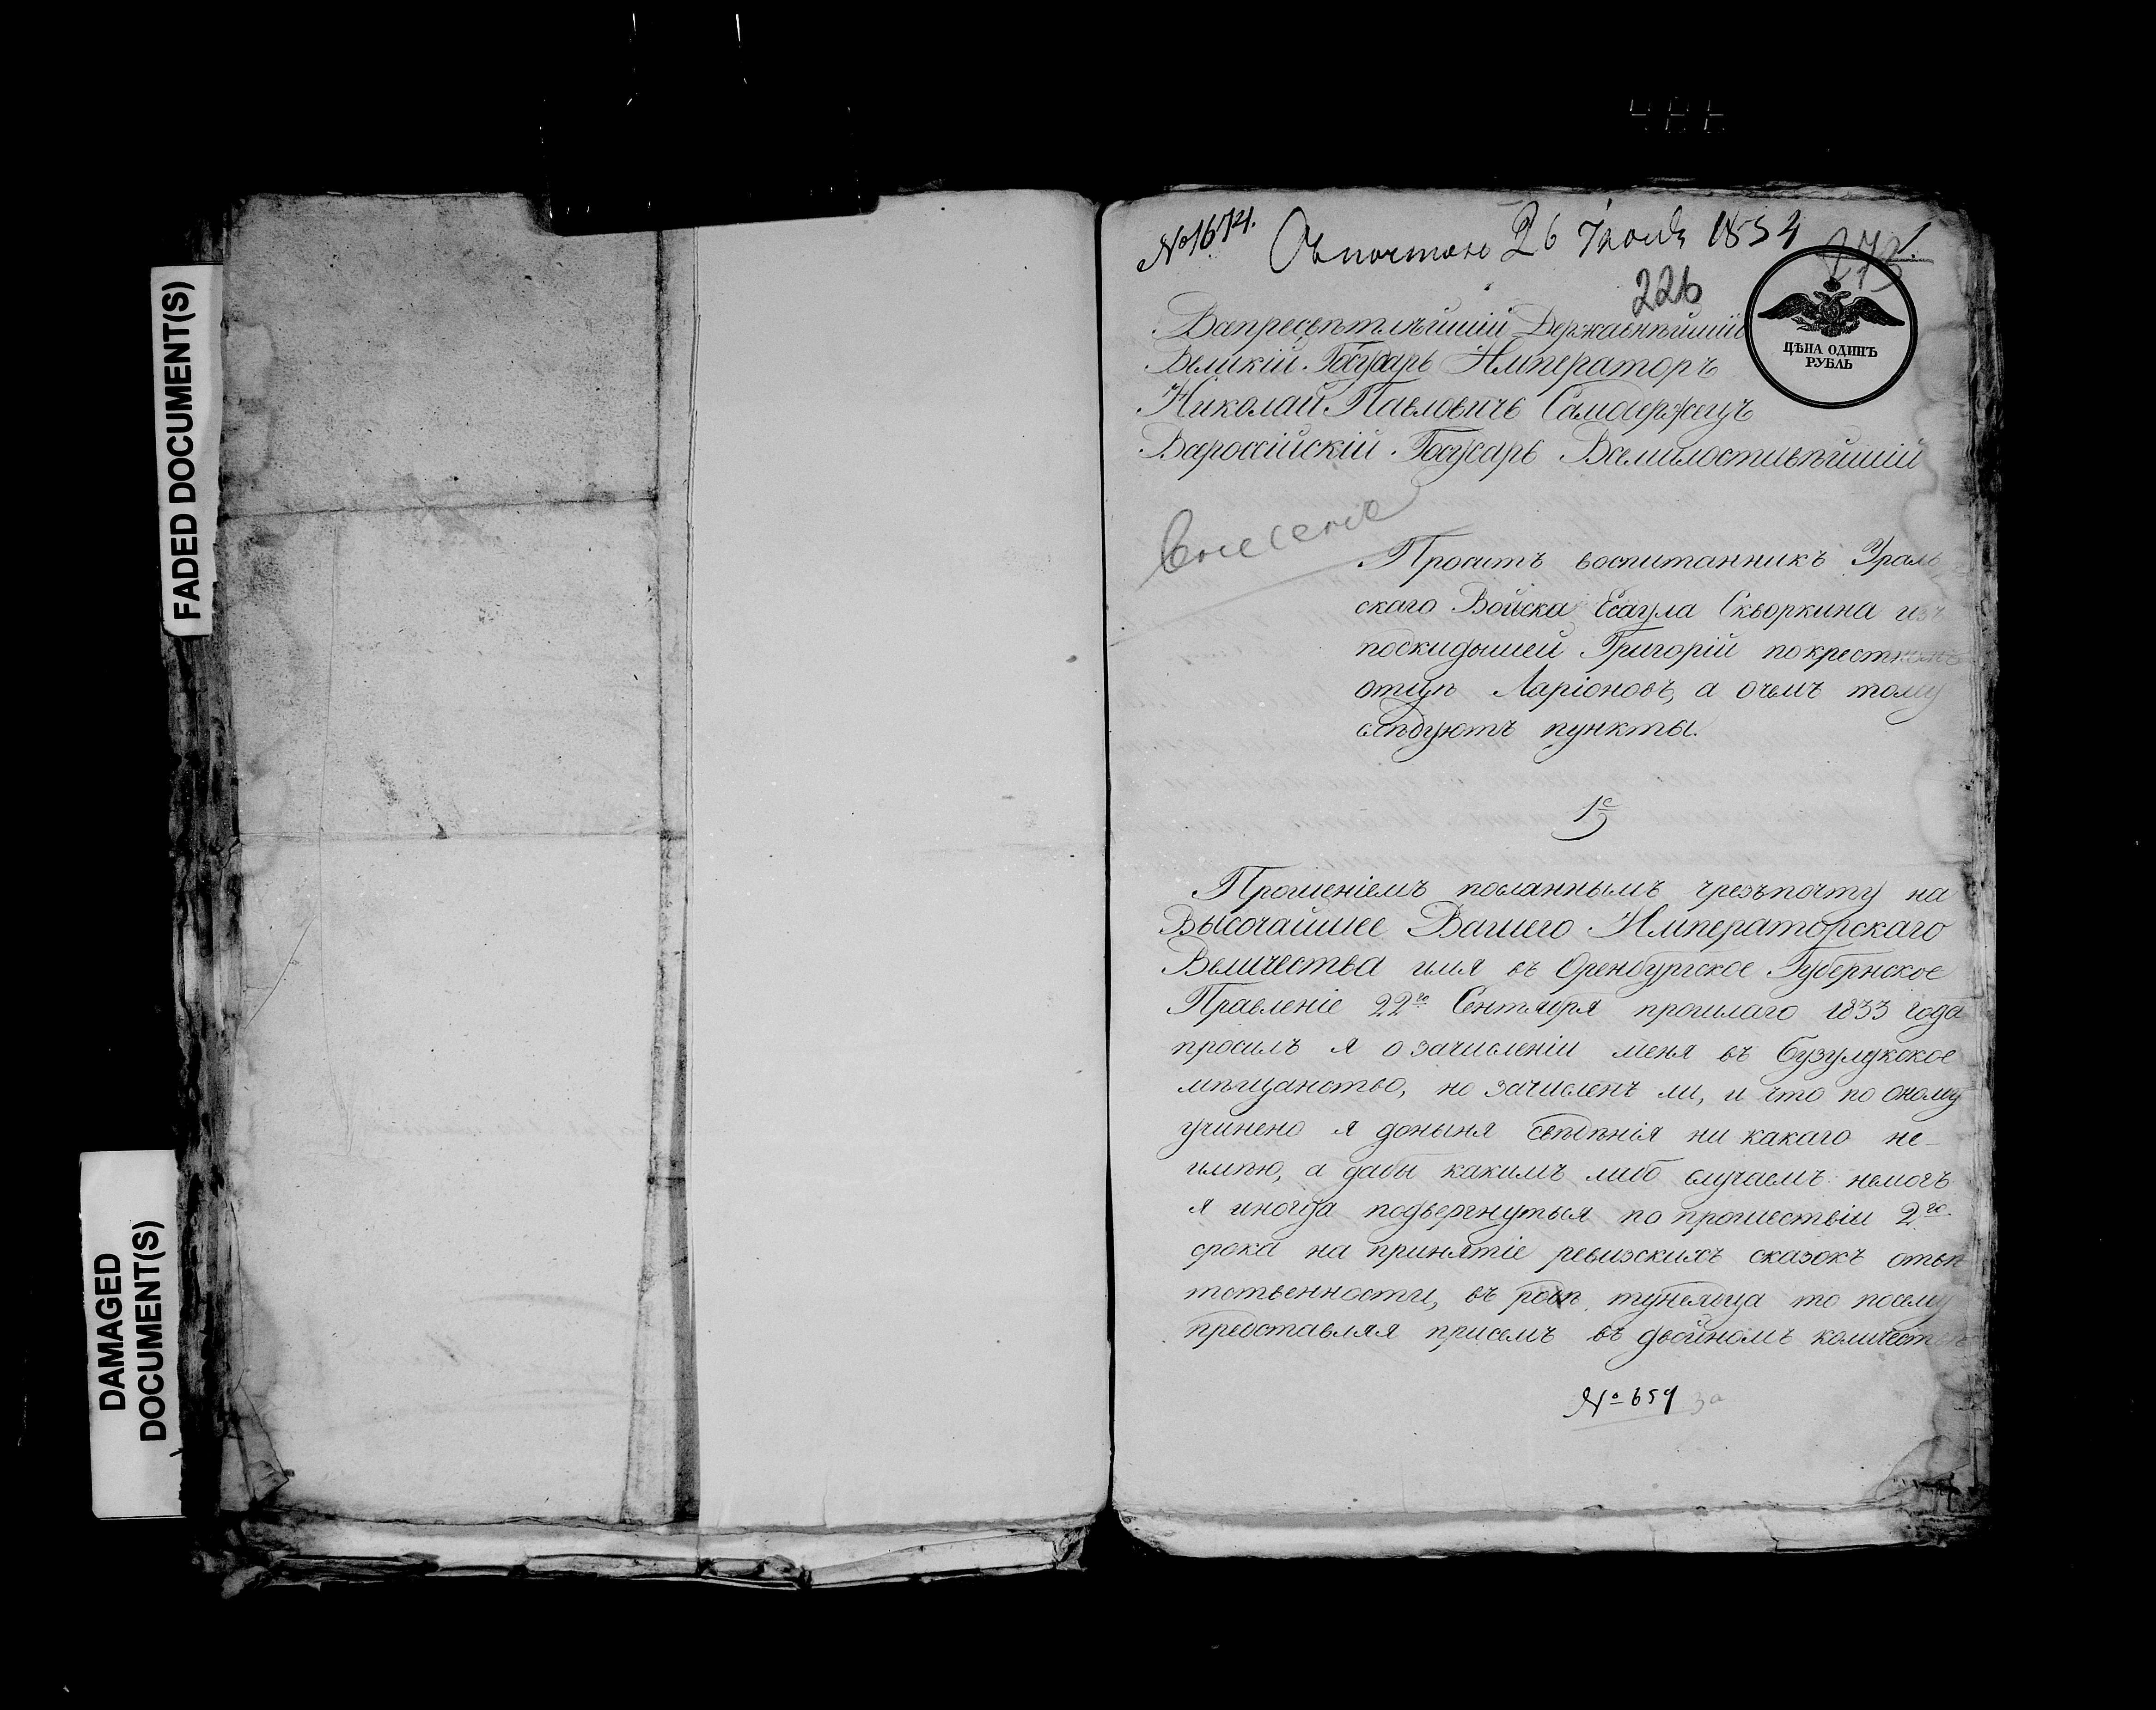 FADED DOCUMENT(S)
DAMAGED
DOCUMENT(S)
№ 1674.
Съ почтою 26 Июня 1834
273
226
ЦѢНА ОДИНЪ
РУБЛЬ
Всепресвѣтлѣйшій Державнѣйшій
Великій Государь Императоръ
Николай Павловичь Самодержецъ
Всероссійскій Государь Всемилостивѣйшій
Проситъ воспитанникъ Ураль
скаго Войска Есаула Скворкина изъ
подкидышей Григорій по крестному
отцѣ Ларіоновъ, а о чемъ тому
слѣдуютъ пункты.
1е
Прошеніемъ посланнымъ чрезъ почту на
Высочайшее Вашего Императорскаго
Величества имя въ Оренбургское Губернское
Правленіе 22го Сентября прошлаго 1833 года
просилъ я о зачисленіи меня въ Бузулукское
мѣщанство, но зачисленъ ли, и что по оному
учинено я донынѣ свѣдѣнія ни какаго не-
имѣю, а дабы какимъ либо случаемъ немогъ
я иногда подвергнуться по прошествіи 2го
срока на принятіе ревизскихъ сказокъ отвѣ
тственности, въ родѣ тунеядца то посему
представляя присемъ въ двойномъ количествѣ
№ 659